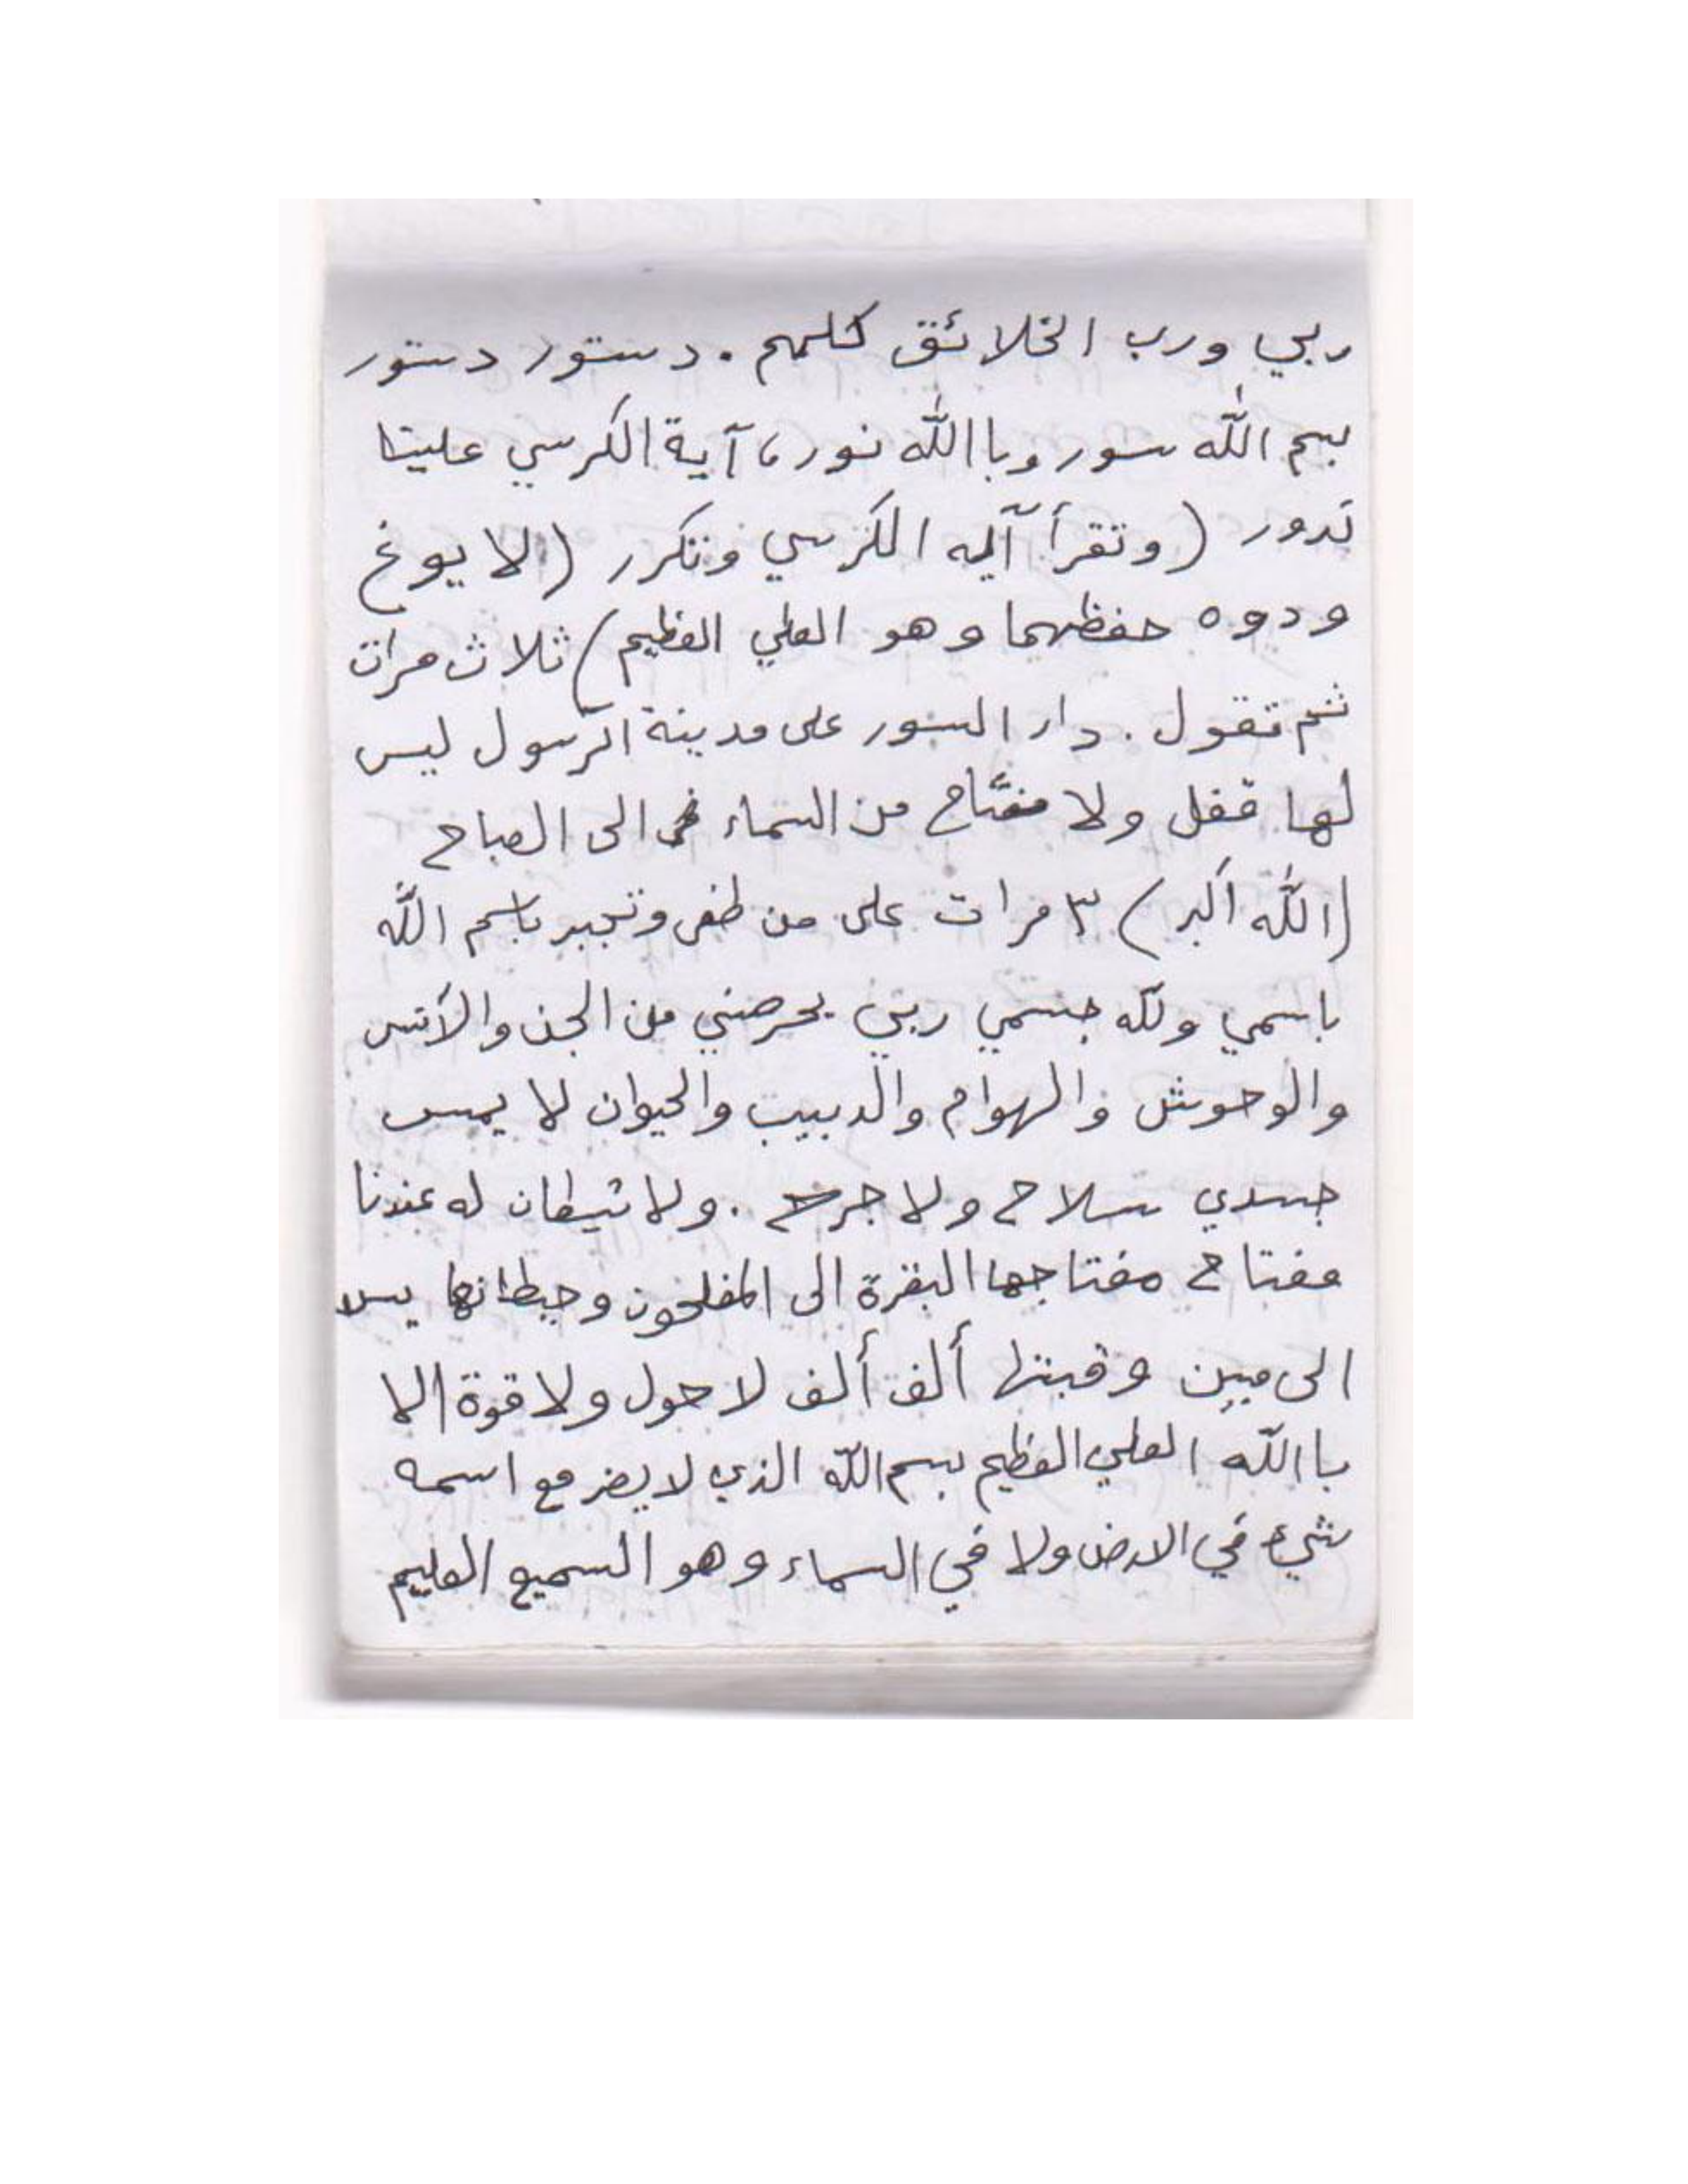 ربي ورب الخلائق كلهم . دستور دستور
بسم الله سور وباالله نور ، آية الكرسي علينا
تدور (وتقرأ آيه الكرسي وتكرر (الا يوخ
ودوه حفظهما وهو العلي العظيم) ثلاث مرات
ثم تقول . دار السور على مدينة الرسول ليس
لها قفل ولا مفتاح من السماء الى الصباح
(الله أكبر) ٣ مرات على من طغى وتجبر باسم الله
باسمي ولله جسمي ربي يحرصني من الجن والأنس
والوحوش والهوام والدبيب والحيوان لا يمس
جسدي سلاح ولا جرح . ولا شيطان له عندنا
مفتاح مفتاحها البقرة الى المفلحون وحيطانها يس
الى مبين وقبتها ألف ألف لا حول ولا قوة الا
باالله العلي العظيم بسم الله الذي لا يضر مع اسمه
شيء في الارض ولا في السماء وهو السميع العليم